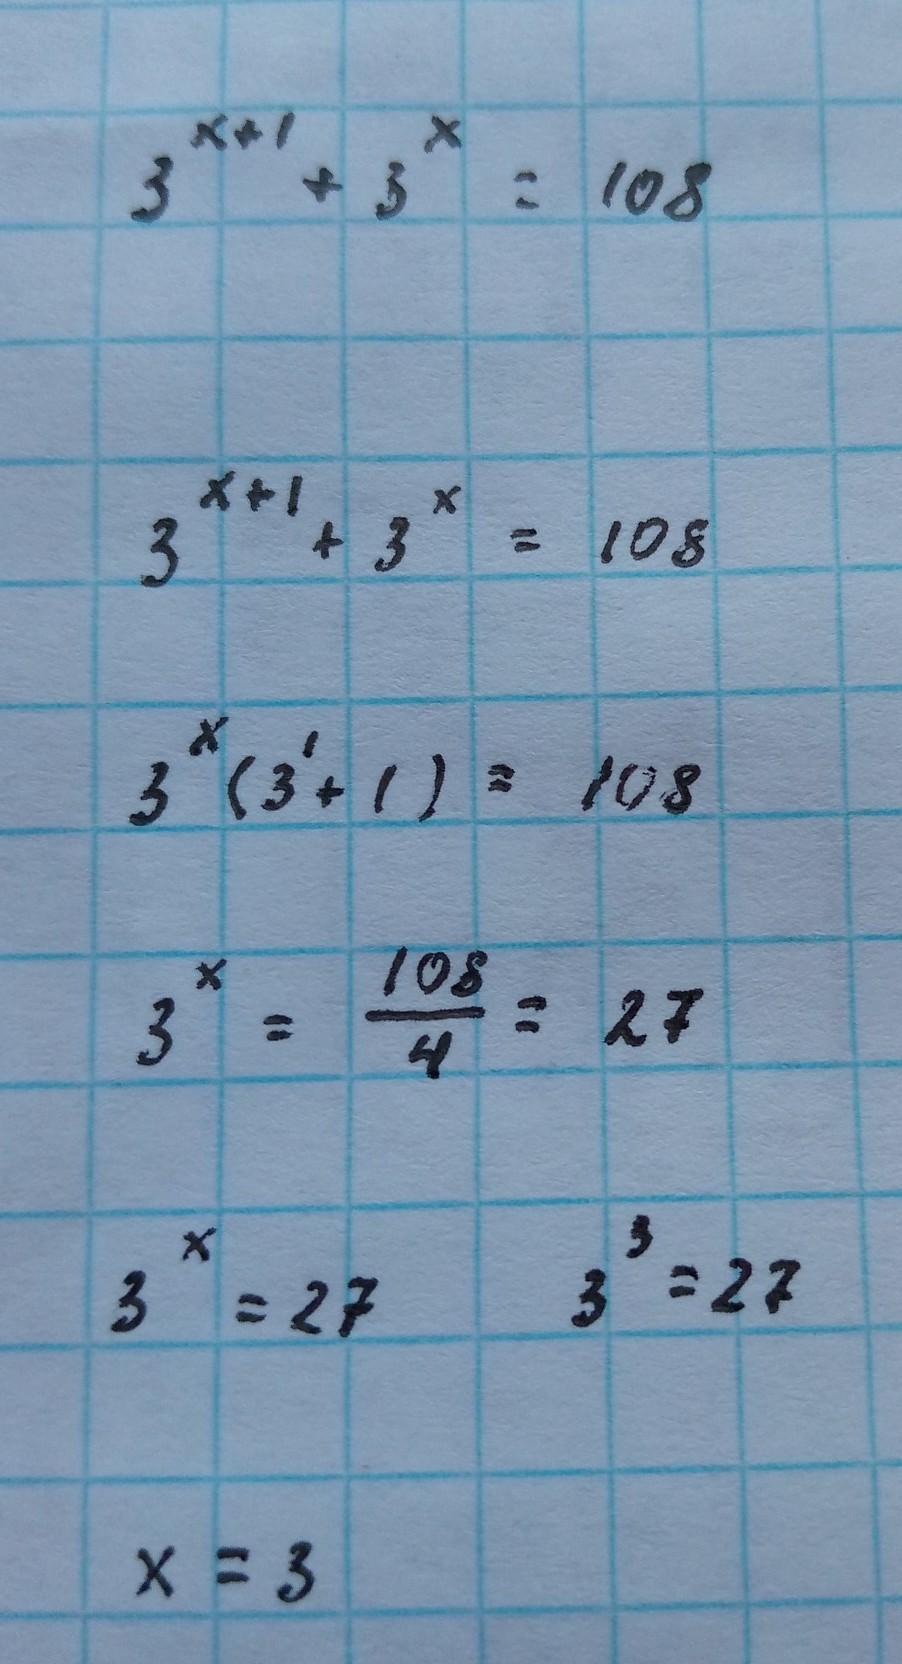 3^{x+1} + 3^x = 108
3^{x+1} + 3^x = 108
3^x (3^1 + 1) = 108
3^x = \frac{108}{4} = 27
3^x = 27    3^3 = 27
x = 3